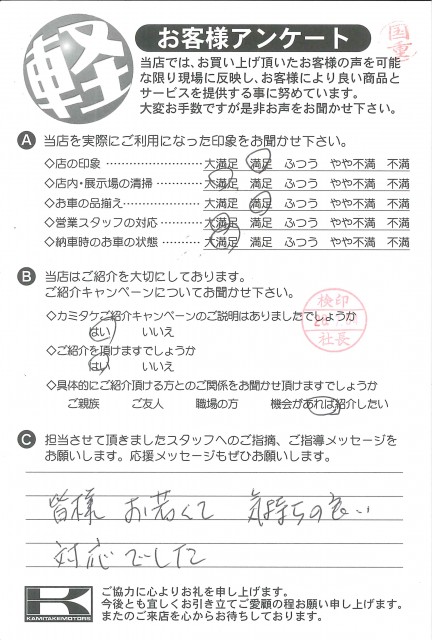 軽
お客様アンケート
国重
当店では、お買い上げ頂いたお客様の声を可能
な限り現場に反映し、お客様により良い商品と
サービスを提供する事に努めています。
大変お手数ですが是非お声をお聞かせ下さい。
A 当店を実際にご利用になった印象をお聞かせ下さい。
◇店の印象 ‥‥‥‥‥‥‥‥ 大満足 満足 ふつう やや不満 不満
◇店内・展示場の清掃‥‥‥‥ 大満足 満足 ふつう やや不満 不満
◇お車の品揃え‥‥‥‥‥‥‥ 大満足 満足 ふつう やや不満 不満
◇営業スタッフの対応‥‥‥‥ 大満足 満足 ふつう やや不満 不満
◇納車時のお車の状態‥‥‥‥ 大満足 満足 ふつう やや不満 不満
B 当店はご紹介を大切にしております。
ご紹介キャンペーンについてお聞かせ下さい。
◇カミタケご紹介キャンペーンのご説明はありましたでしょうか
はい いいえ
◇ご紹介を頂けますでしょうか
はい いいえ
検印
社長
◇具体的にご紹介頂ける方とのご関係をお聞かせ頂けますでしょうか
ご親族 ご友人 職場の方 機会があれば紹介したい
C 担当させて頂きましたスタッフへのご指摘、ご指導メッセージを
お願いします。応援メッセージもぜひお願いします。
皆様 お若くて 気持ちの良い
対応でした
K
KAMITAKEMOTORS
ご協力に心よりお礼を申し上げます。
今後とも宜しくお引き立てご愛顧の程お願い申し上げます。
またのご来店を心からお待ちしております。